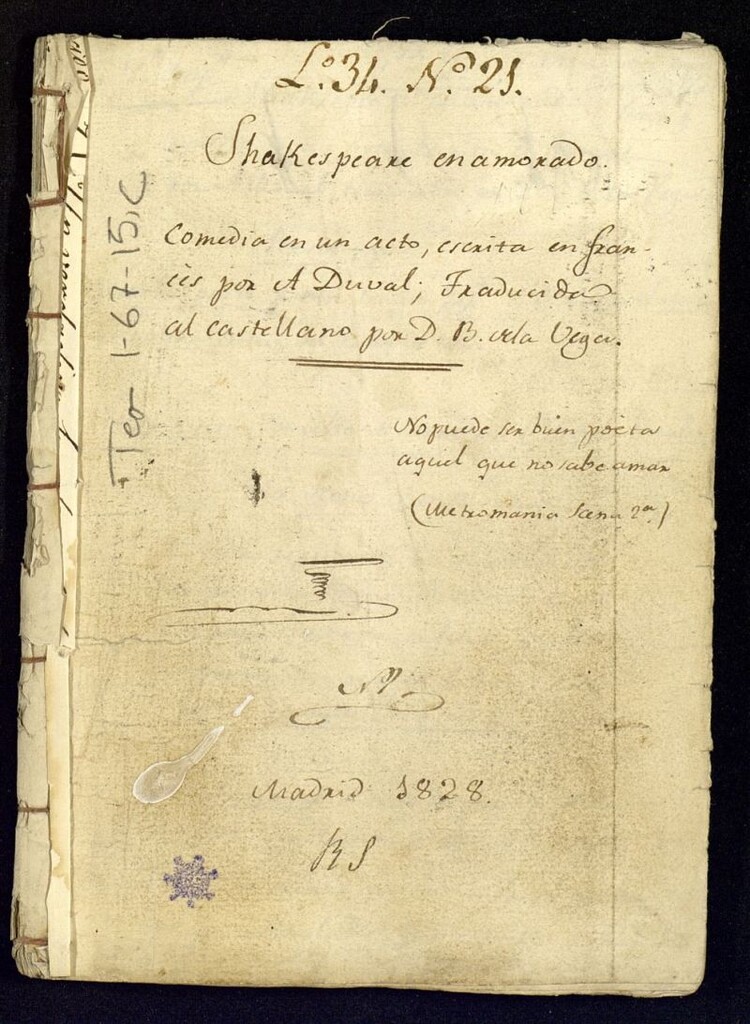 L.º 34. N.º 21.
Shakespeare enamorado.
Comedia en un acto, escrita en fran-
cés por A Duval; Traducida
al castellano por D. B. de la Vega.
No puede ser buen poeta
aquel que no sabe amar
(Metromania Scena 2ª)
Madrid 1828.
Tea 1-67-15, C